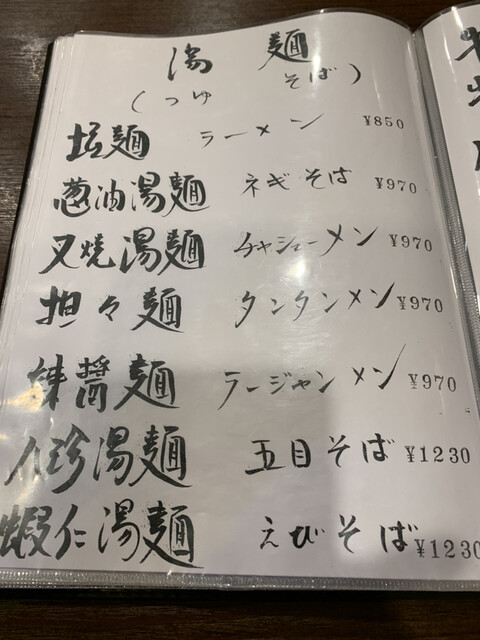 湯麺
(つゆそば)
拉麺 ラーメン ¥850
葱油湯麺 ネギそば ¥970
叉焼湯麺 チャシューメン ¥970
担々麺 タンタンメン ¥970
辣醤麺 ラージャンメン ¥970
八珍湯麺 五目そば ¥1230
蝦仁湯麺 えびそば ¥1230